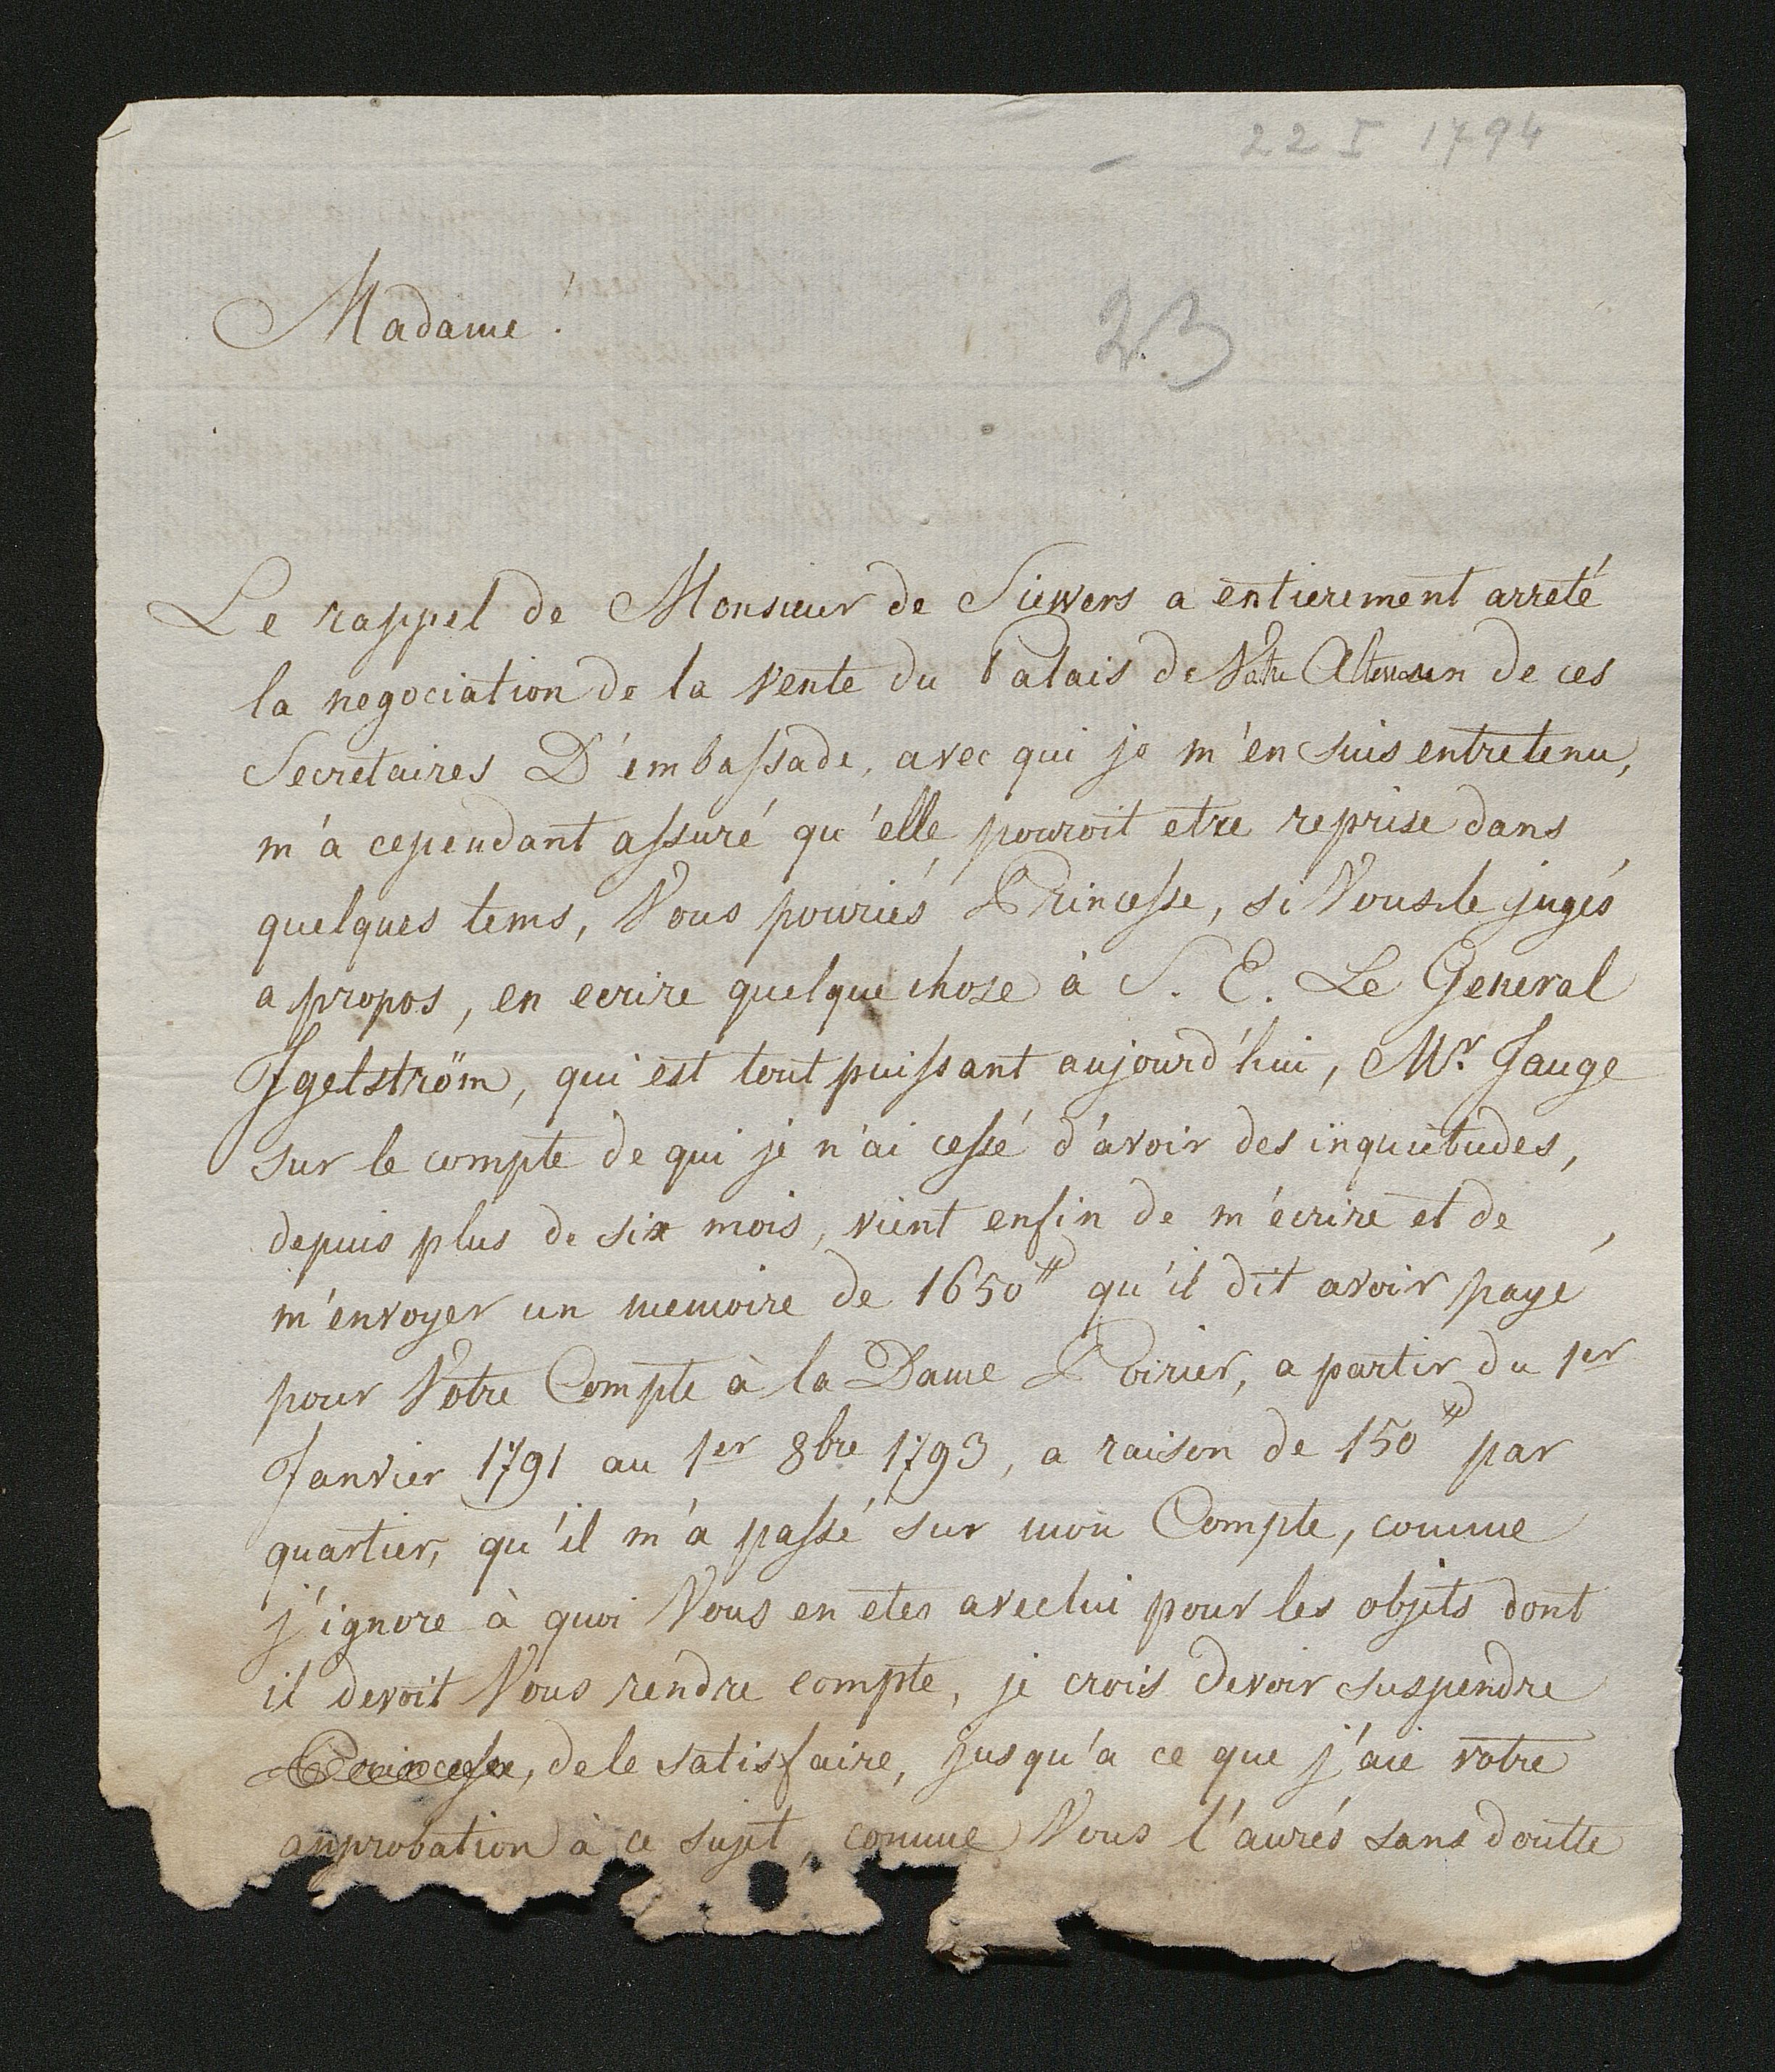 22 I 1794
Madame!
23
Le rappel de Monsieur de Siewers a entierement arreté
la negociation de la vente du Palais de Votre Altesse un de ces
Secretaires D'embassade, avec qui je m'en suis entretenu,
m'a cependant assuré qu'elle pouroit etre reprise dans
quelques tems, Vous pouriés Princesse, si Vous le jugés
a propos, en ecrire quelque chose à S. E. Le General
Igelström, qui est tout puissant aujourd'hui, Mr. Jauge
sur le compte de qui je n'ai cessé d'avoir des inquietudes,
depuis plus de six mois, vient enfin de m'écrire et de
m'envoyer un memoire de 1650# qu'il dit avoir payé
pour Votre Compte à la Dame Poirier, a partir du 1er
Janvier 1791 au 1er 8bre 1793, a raison de 150# par
quartier, qu'il m'a passé sur mon Compte, comme
j'ignore à quoi Vous en etes avec lui pour les objets dont
il devoit Vous rendre compte, je crois devoir suspendre
Princesse, de le satisfaire, jusqu'a ce que j'aie votre
approbation à ce sujet, comme Vous l'aurés sans doutte